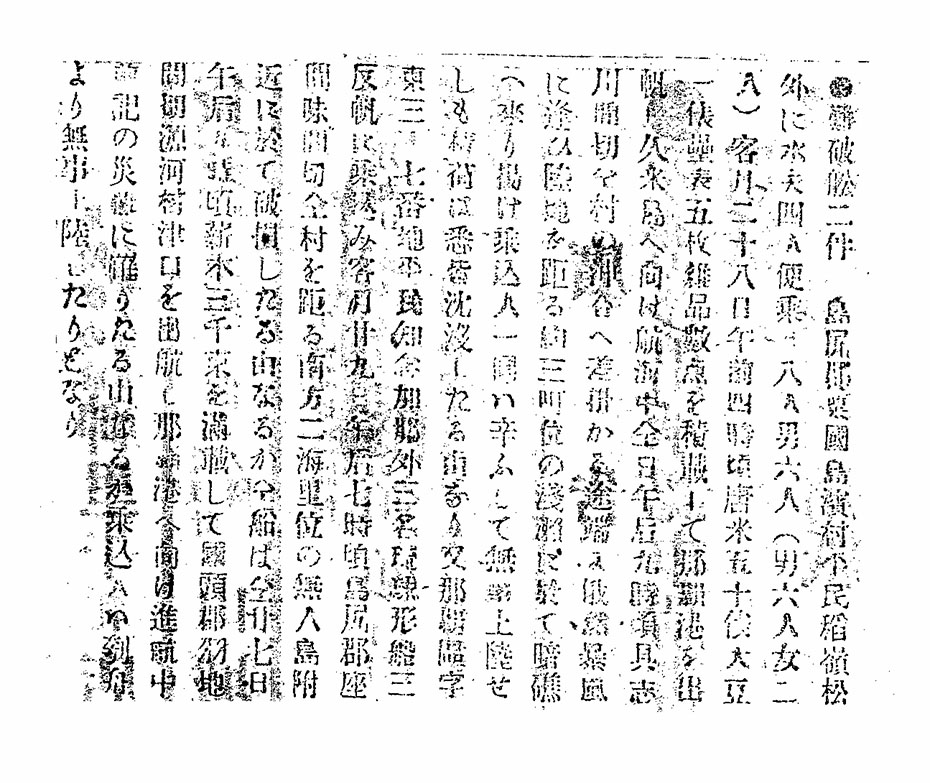 ●難破船二件　島尻郡粟國島濱村平民稻嶺松
外に水夫四人便乗 八人男六人（男六人女二
人）客月二十八日午前四時頃唐米五十俵大豆
一俵疊表五枚雜品數点を積載して那覇港を出
帆し久米島へ向け航海中仝日午后九時頃具志
川間切仝村の沖合へ差掛かる途端に俄然暴風
に逢ひ陸地を距る約三町位の淺瀬に於て暗礁
へ乗り揚け乗込人一同ハ辛ふして無難上陸せ
しも積荷は悉皆沈沒したる由なり又那覇區字
東三 七番地平民知念加那外三名琉球形船三
反帆に乗込み客月廿九日午后七時頃島尻郡座
間味間切仝村を距る南方二海里位の無人島附
近に於て破損したる由なるか仝船は仝廿七日
午后 時頃薪木三千束を満載して國頭郡羽地
間切源河村津口を出航し那覇港へ向け進航中
前記の災難に罹りたる由なる 乗込人ハ 舟
より無事上陸したりとなり